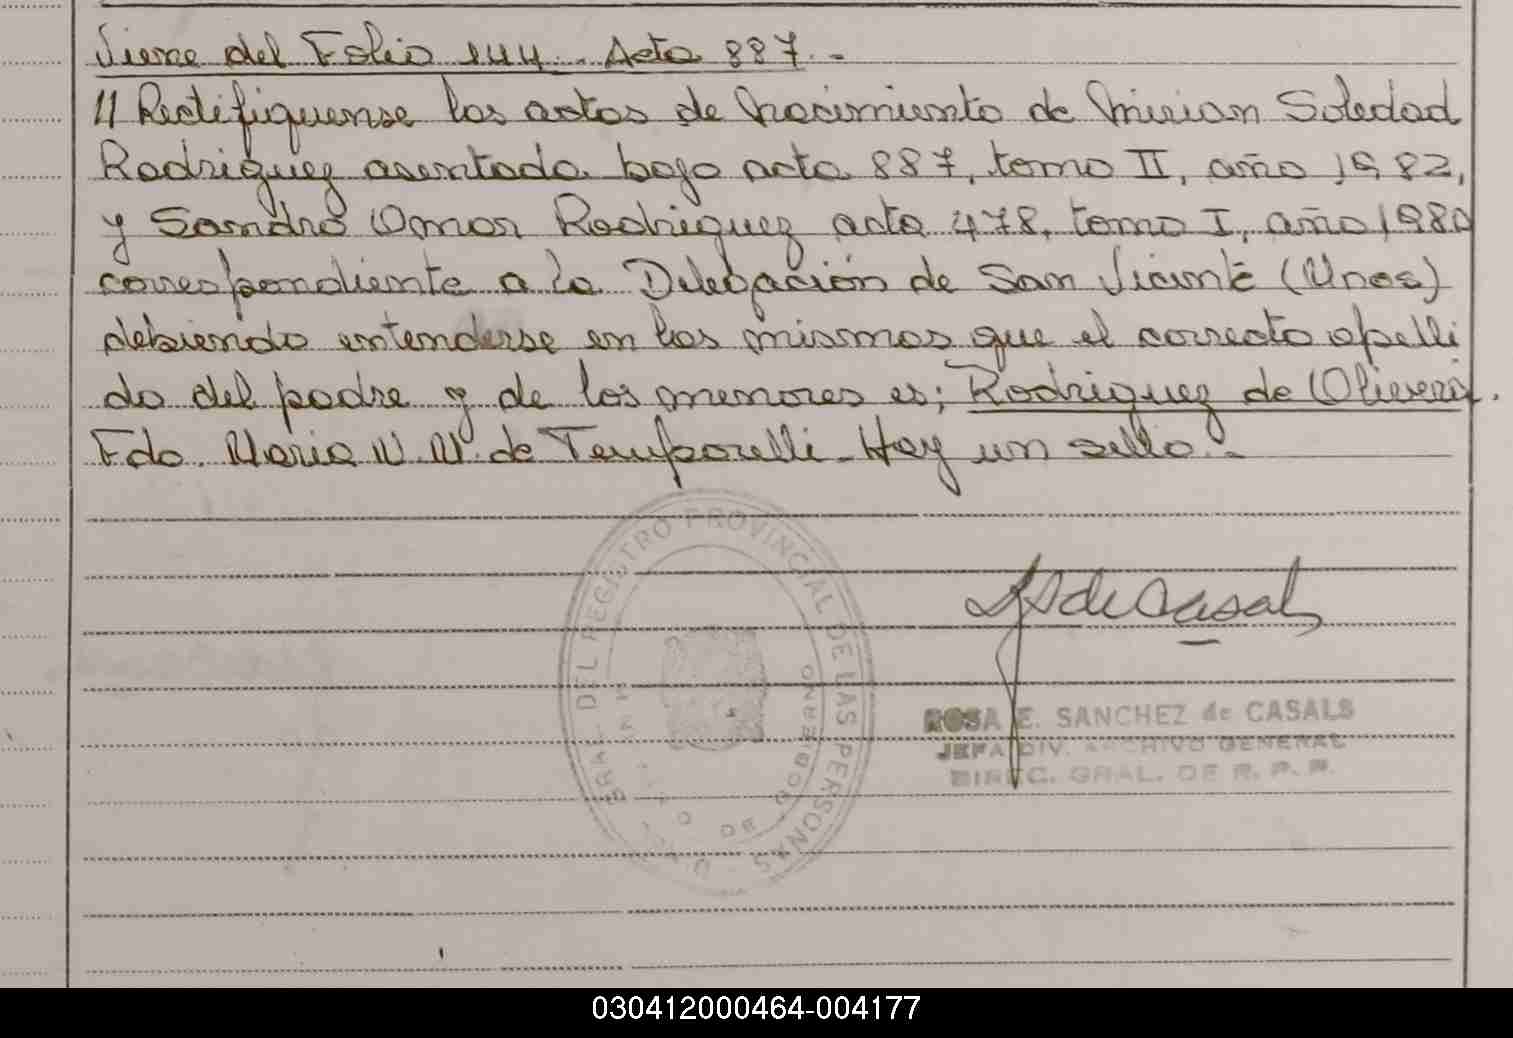 Viene del Folio 144. Acta 887.-
// Rectifiquense las actas de Nacimiento de Mirian Soledad
Rodriguez asentada bajo acta 887, tomo II, año 1982,
y Sandro Omar Rodriguez acta 478, tomo I, año 1980
correspondiente a la Delegación de San Vicente (Mnes)
debiendo entenderse en las mismas que el correcto apelli
do del padre y de los menores es; Rodriguez de Olivera.
Fdo. Maria N. N. de Temporelli - Hay un sello.-
DEL REGISTRO PROVINCIAL DE LAS PERSONAS
de Casals
ROSA E. SANCHEZ de CASALS
JEFA DIV. ARCHIVO GENERAL
DIREC. GRAL. DE R. P. P.
030412000464-004177